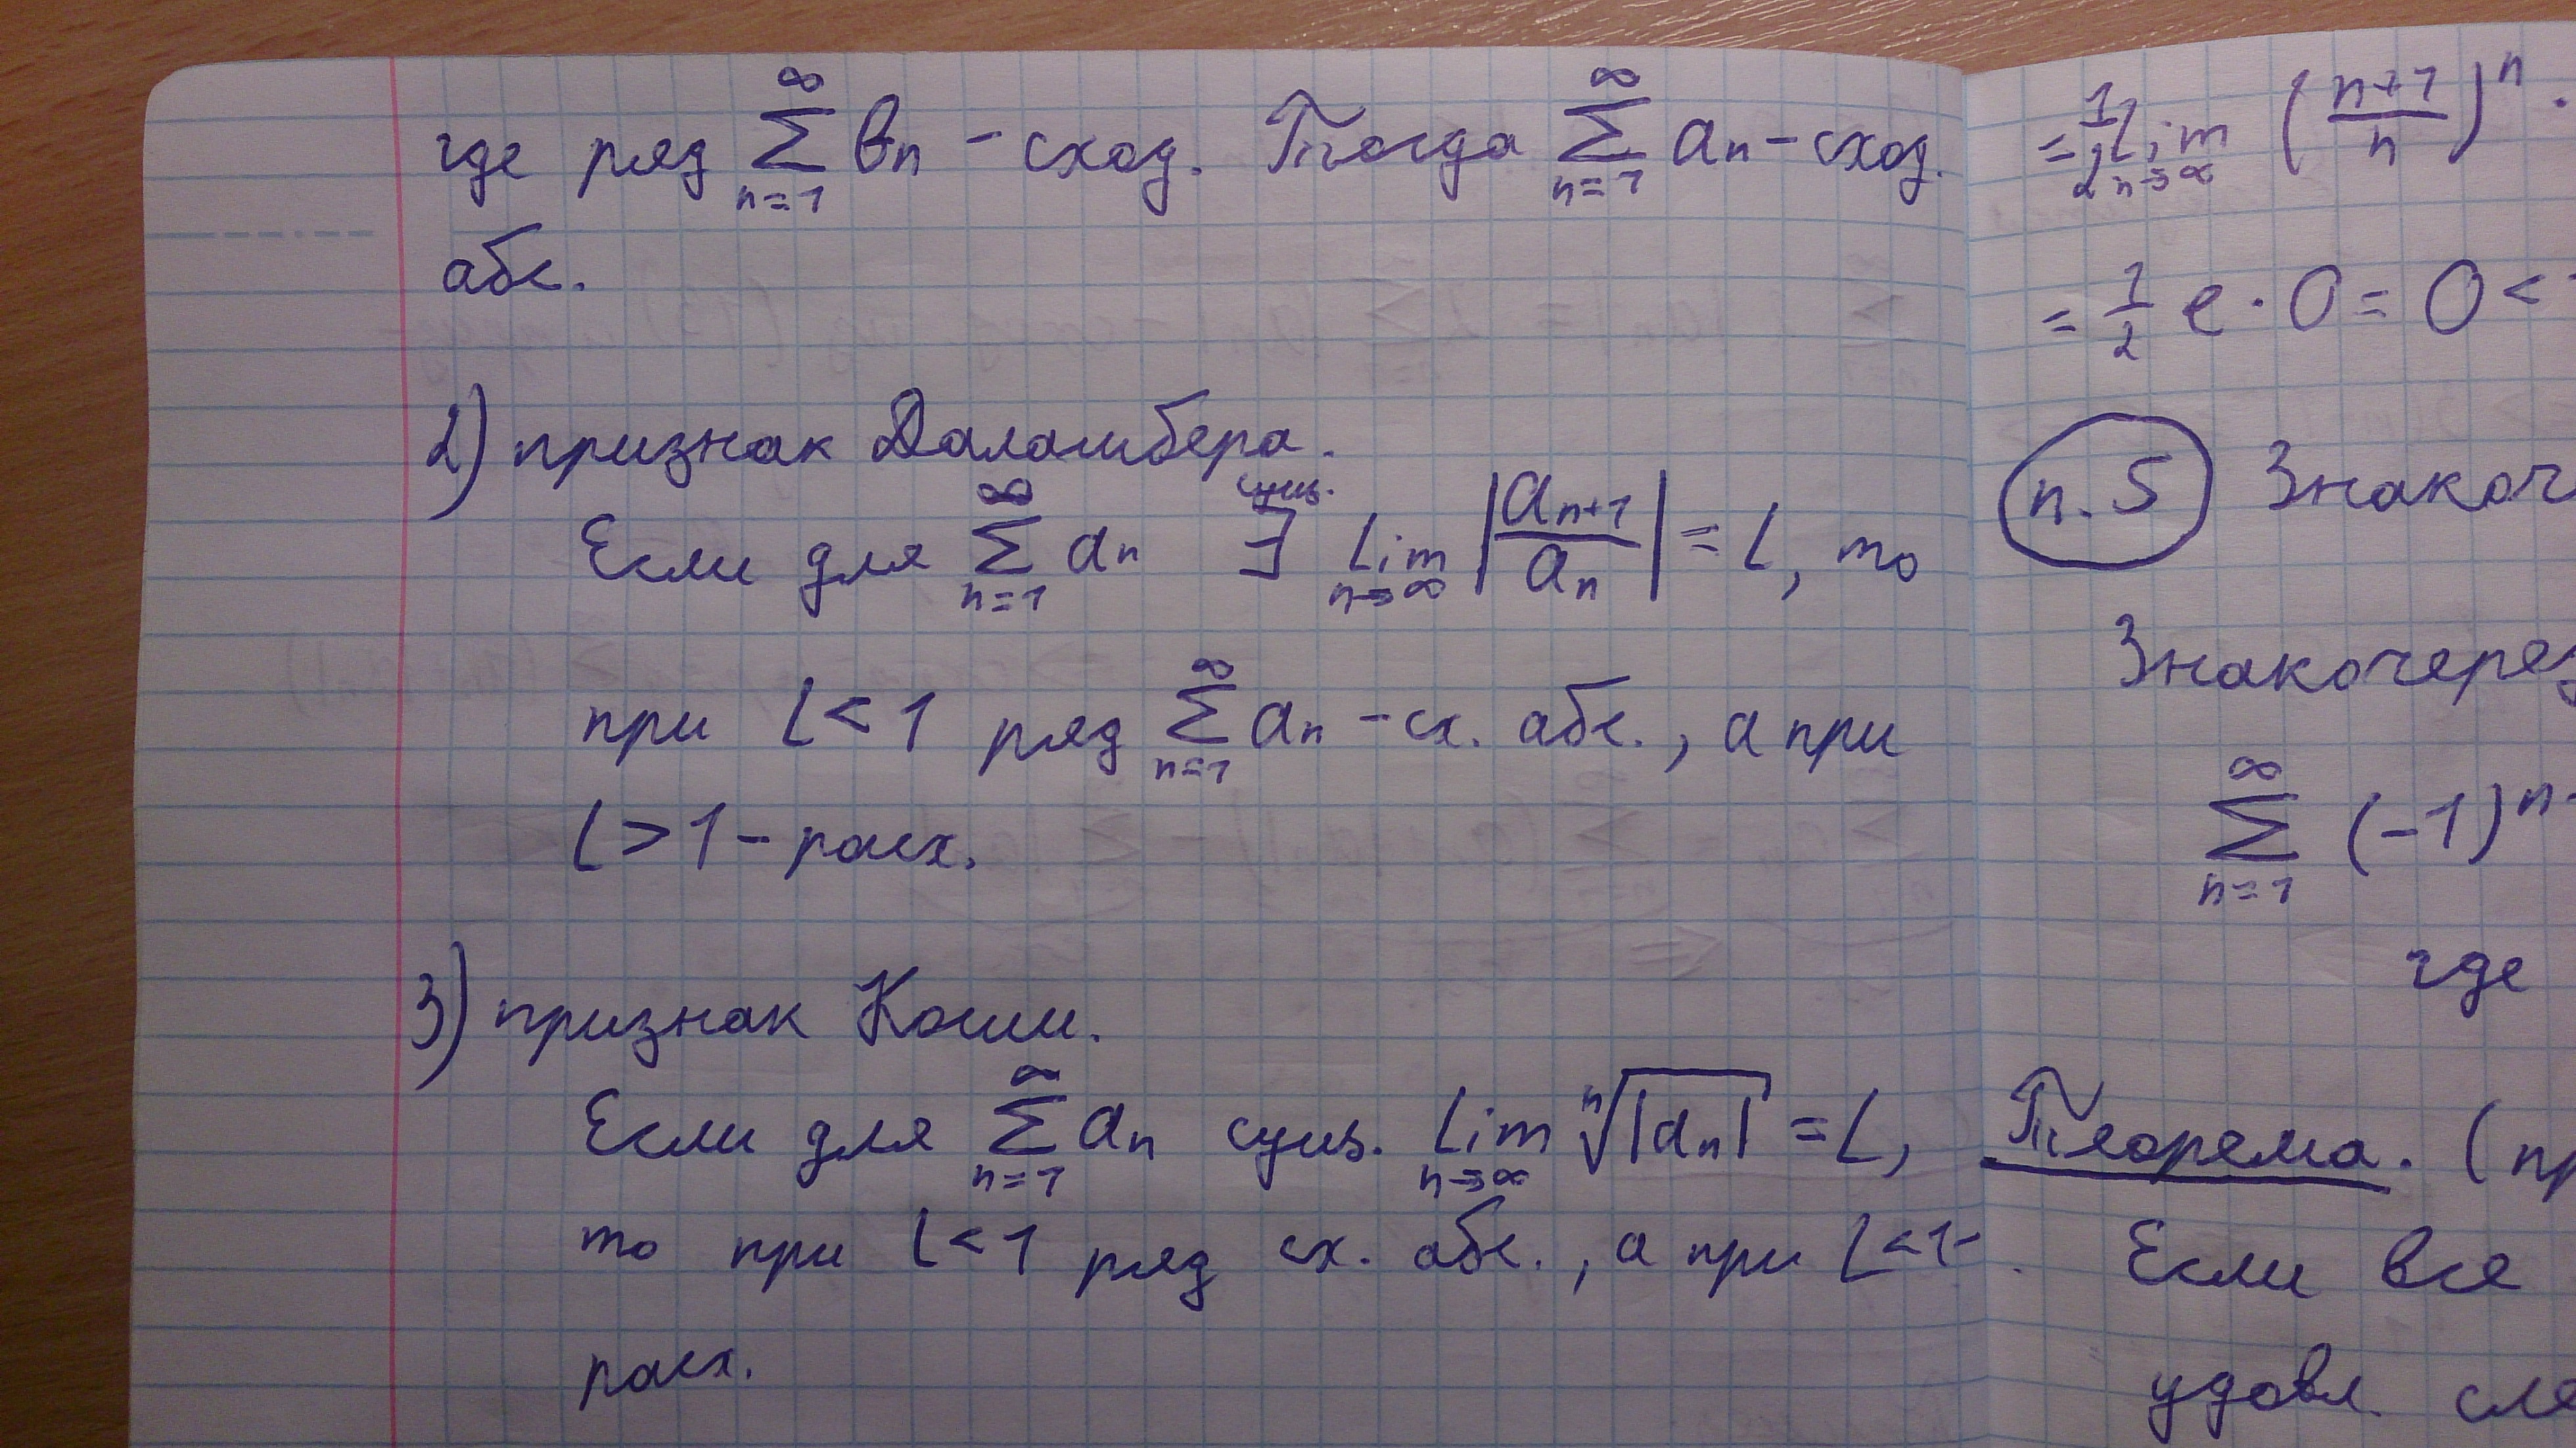 где ряд \sum_{n=1}^{\infty} b_n - сход. Тогда \sum_{n=1}^{\infty} a_n - сход.
абс.
2) признак Даламбера.
сущ.
Если для \sum_{n=1}^{\infty} a_n ∃ Lim_{n→∞} |a_{n+1}/a_n| = L, то
при L < 1 ряд \sum_{n=1}^{\infty} a_n - сх. абс., а при
L > 1 - расх.
3) признак Коши.
Если для \sum_{n=1}^{\infty} a_n сущ. Lim_{n→∞} \sqrt[n]{|a_n|} = L,
то при L < 1 ряд сх. абс., а при L < 1 -
расх.
= 1/2 Lim_{n→∞} ((n+1)/n)^n ·
= 1/2 e · 0 = 0 <
п. 5 Знакоч
Знакочеред
\sum_{n=1}^{\infty} (-1)^{n-
где
Теорема. (пр
Если все
удовл. сле